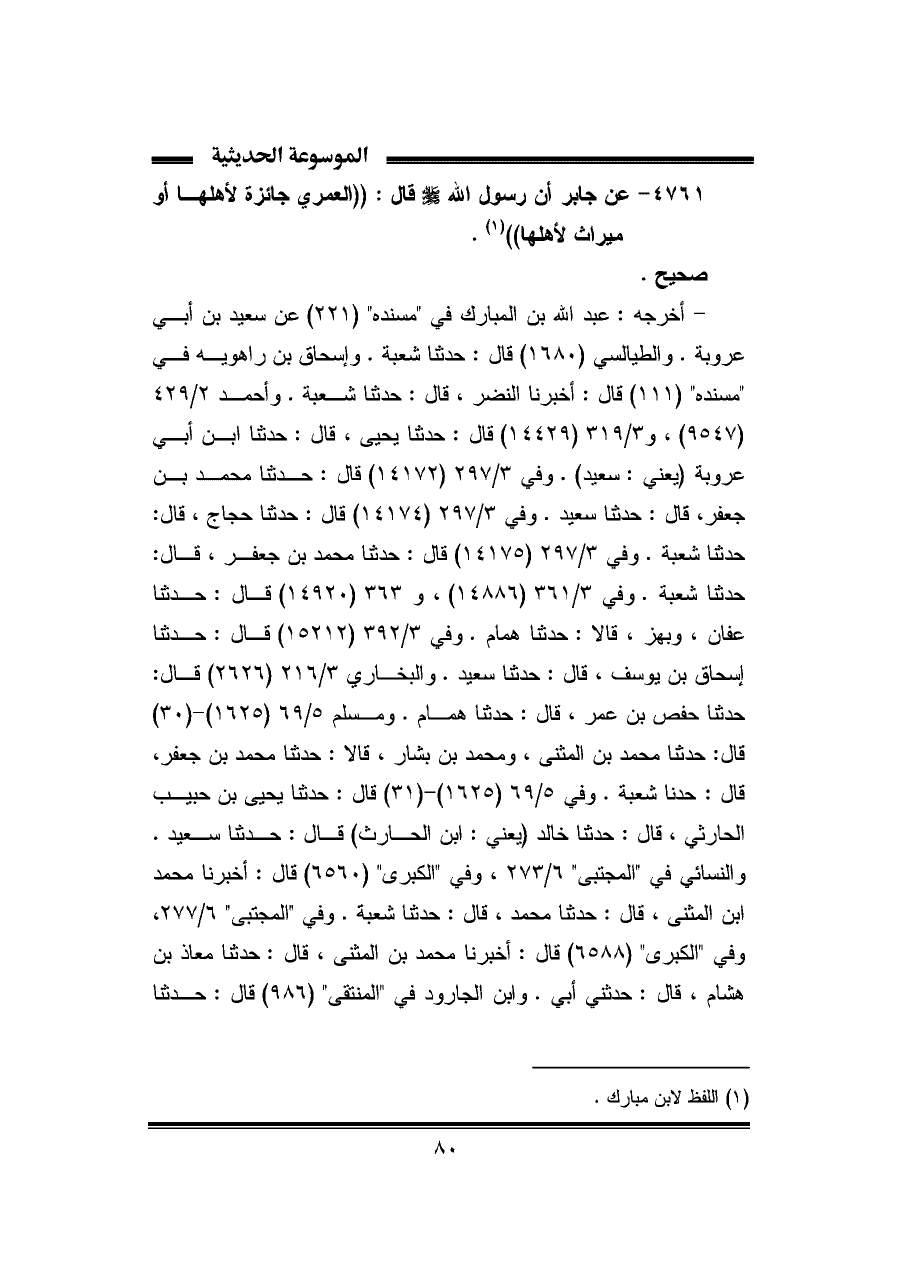 الموسوعة الحديثية
٤٧٦١- عن جابر أن رسول الله ﷺ قال : ((العمري جائزة لأهلهـــا أو
ميراث لأهلها))(١) .
صحيح .
- أخرجه : عبد الله بن المبارك في "مسنده" (٢٢١) عن سعيد بن أبـــي
عروبة . والطيالسي (١٦٨٠) قال : حدثنا شعبة . وإسحاق بن راهويـــه فـــي
"مسنده" (١١١) قال : أخبرنا النضر ، قال : حدثنا شـــعبة . وأحمـــد ٤٢٩/٢
(٩٥٤٧) ، و٣١٩/٣ (١٤٤٢٩) قال : حدثنا يحيى ، قال : حدثنا ابـــن أبـــي
عروبة (يعني : سعيد) . وفي ٢٩٧/٣ (١٤١٧٢) قال : حـــدثنا محمـــد بـــن
جعفر، قال : حدثنا سعيد . وفي ٢٩٧/٣ (١٤١٧٤) قال : حدثنا حجاج ، قال:
حدثنا شعبة . وفي ٢٩٧/٣ (١٤١٧٥) قال : حدثنا محمد بن جعفـــر ، قـــال:
حدثنا شعبة . وفي ٣٦١/٣ (١٤٨٨٦) ، و ٣٦٣ (١٤٩٢٠) قـــال : حـــدثنا
عفان ، وبهز ، قالا : حدثنا همام . وفي ٣٩٢/٣ (١٥٢١٢) قـــال : حـــدثنا
إسحاق بن يوسف ، قال : حدثنا سعيد . والبخـــاري ٢١٦/٣ (٢٦٢٦) قـــال:
حدثنا حفص بن عمر ، قال : حدثنا همـــام . ومـــسلم ٦٩/٥ (١٦٢٥)-(٣٠)
قال: حدثنا محمد بن المثنى ، ومحمد بن بشار ، قالا : حدثنا محمد بن جعفر،
قال : حدنا شعبة . وفي ٦٩/٥ (١٦٢٥)-(٣١) قال : حدثنا يحيى بن حبيـــب
الحارثي ، قال : حدثنا خالد (يعني : ابن الحـــارث) قـــال : حـــدثنا ســـعيد .
والنسائي في "المجتبى" ٢٧٣/٦ ، وفي "الكبرى" (٦٥٦٠) قال : أخبرنا محمد
ابن المثنى ، قال : حدثنا محمد ، قال : حدثنا شعبة . وفي "المجتبى" ٢٧٧/٦،
وفي "الكبرى" (٦٥٨٨) قال : أخبرنا محمد بن المثنى ، قال : حدثنا معاذ بن
هشام ، قال : حدثني أبي . وابن الجارود في "المنتقى" (٩٨٦) قال : حـــدثنا
(١) اللفظ لابن مبارك .
٨٠